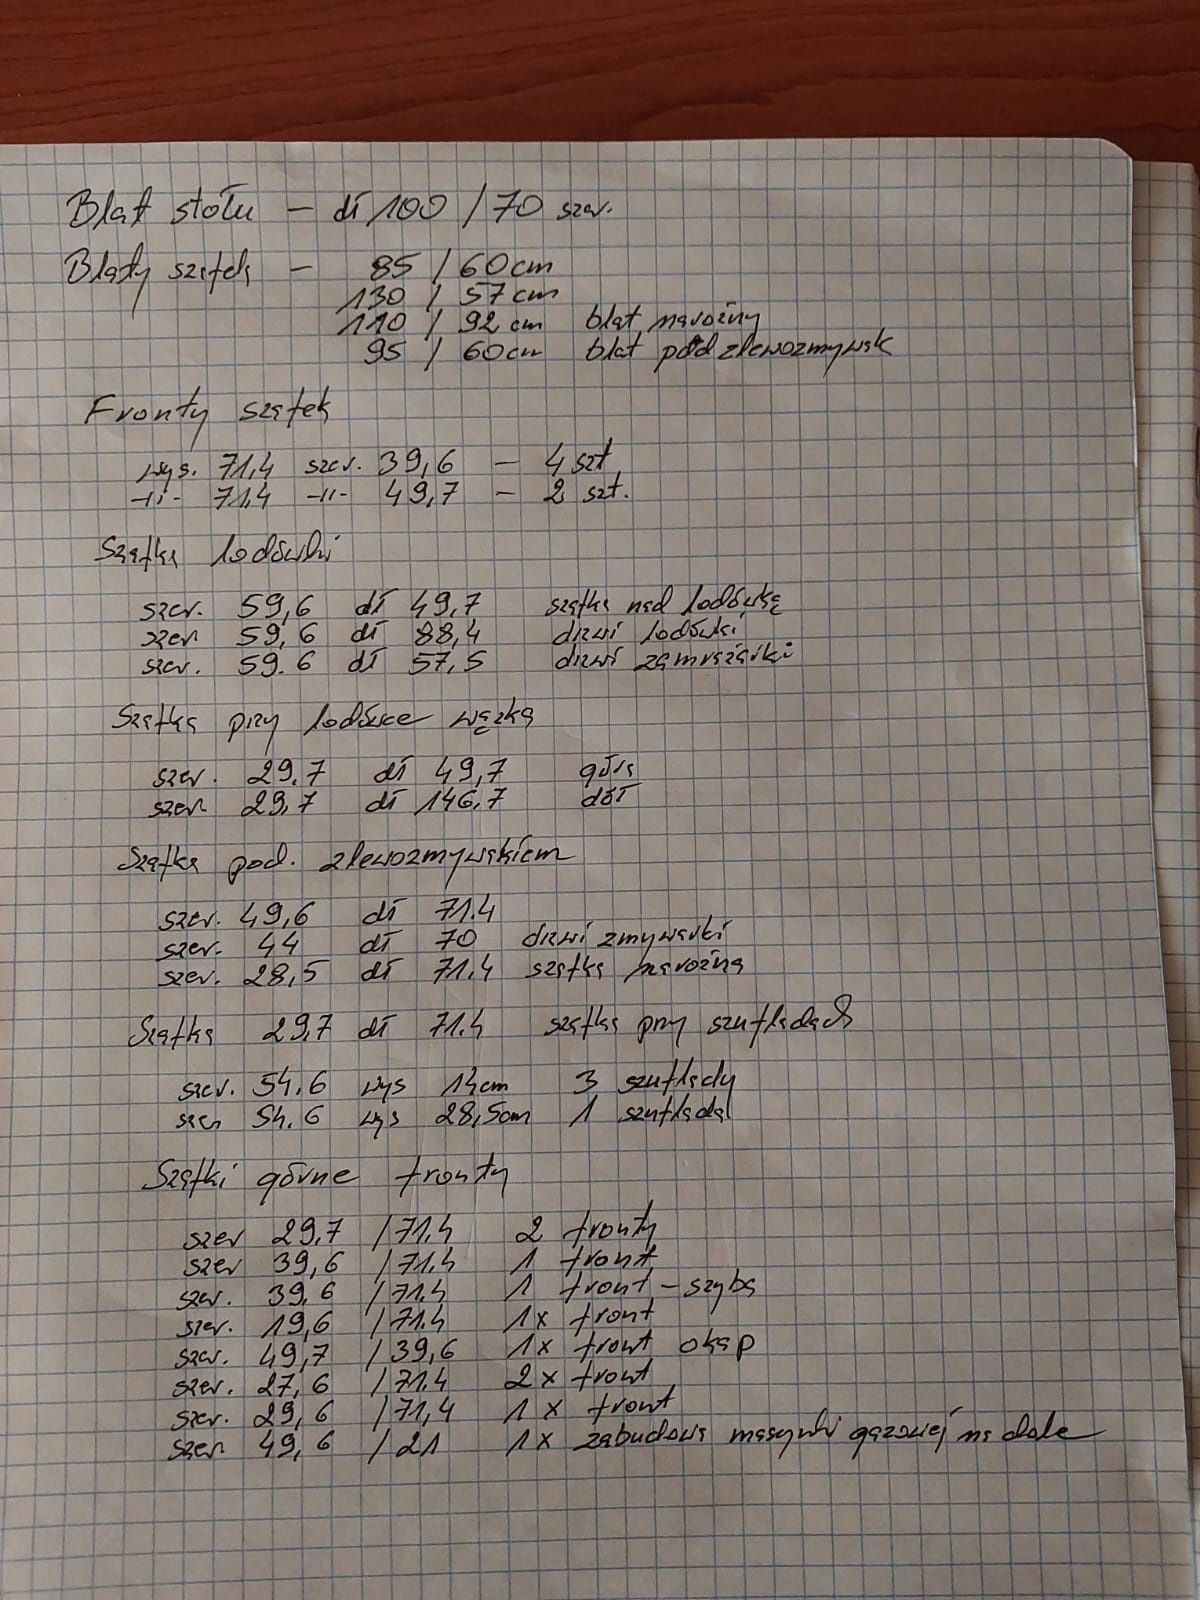 Blat stołu – dł 100 / 70 szer.
Blaty szafek – 85 / 60 cm
130 / 57 cm
110 / 92 cm blat narożny
95 / 60 cm blat pod zlewozmywak
Fronty szafek
wys. 71.4 szer. 39,6 – 4 szt
-||- 71.4 -||- 49,7 – 2 szt.
Szafka lodówki
szer. 59,6 dł 49.7 szafka nad lodówką
szer 59,6 dł 88,4 drzwi lodówki
szer. 59.6 dł 57,5 drzwi zamrażarki
Szafka przy lodówce wązka
szer. 29.7 dł 49,7 góra
szer. 29,7 dł 146,7 dół
Szafka pod. zlewozmywakiem
szer. 49,6 dł 71.4
szer. 44 dł 70 drzwi zmywarki
szer. 28,5 dł 71.4 szafka narożna
Szafka 29,7 dł 71.4 szafka przy szufladach
szer. 54.6 wys 14cm 3 szuflady
szer 54.6 wys 28,5cm 1 szuflada
Szafki górne fronty
szer 29,7 / 71.4 2 fronty
szer 39,6 / 71.4 1 front
szer. 39,6 / 71.4 1 front – szyba
szer. 19,6 / 71.4 1x front
szer. 49,7 / 39,6 1x front okap
szer. 27,6 / 71.4 2x front
szer. 29,6 / 71,4 1x front
szer 49,6 / 21 1x zabudowa maszynki gazowej na dole